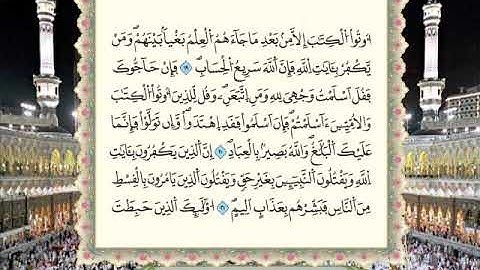 اُوتُواْ الْكِتَٰبَ إِلَّا مِنۢ بَعْدِ مَا جَآءَهُمُ الْعِلْمُ بَغْياَۢ بَيْنَهُمْۖ وَمَنْ
يَّكْفُرْ بِـَٔايَٰتِ اِللَّهِ فَإِنَّ اَللَّهَ سَرِيعُ الْحِسَابِۖ ١٩ فَإِنْ حَآجُّوكَ
فَقُلَ اَسْلَمْتُ وَجْهِيَ لِلهِ وَمَنِ اِتَّبَعَنِۦۖ وَقُل لِّلذِينَ أُوتُواْ الْكِتَٰبَ
وَالُامِّيِّـۧنَ ءَآسْلَمْتُمْۖ فَإِنَ اَسْلَمُواْ فَقَدِ اِهْتَدَواْۖ وَّإِن تَوَلَّوْاْ فَإِنَّمَا
عَلَيْكَ الْبَلَٰغُۖ وَاللَّهُ بَصِيرُۢ بِالْعِبَادِۖ ٢٠ إِنَّ اَلذِينَ يَكْفُرُونَ بِـَٔايَٰتِ
اِللَّهِ وَيَقْتُلُونَ اَلنَّبِيٓـِٕۧنَ بِغَيْرِ حَقّٖ وَيَقْتُلُونَ اَلذِينَ يَامُرُونَ بِالْقِسْطِ
مِنَ اَلنَّاسِ فَبَشِّرْهُم بِعَذَابٍ اَلِيمٍۖ ٢١ اُوْلَٰٓئِكَ اَلذِينَ حَبِطَتَ